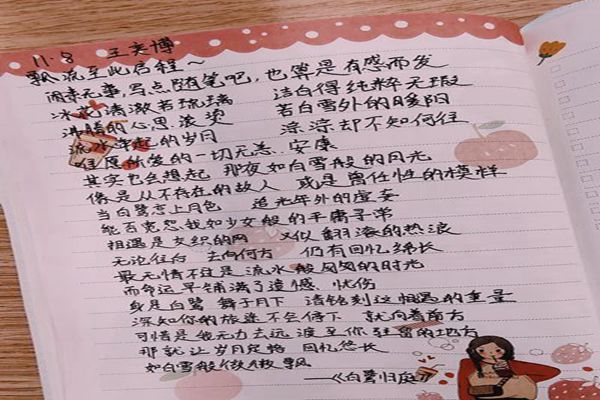 11.8 王奕博
飘流至此启程~
闲来无事,写点随笔吧,也算是有感而发
冰花清澈若琉璃 洁白得纯粹无瑕
沸腾的心思滚烫 若白雪外的暖阳
流水淌起的岁月 淙淙却不知何往
往愿所爱的一切无恙、安康
其实也会想起 那夜如白雪般的月光
像是从不存在的故人 或是曾任性的模样
当白鹭恋上月色 追光年外的虚妄
能否宽恕我如少女般的平庸子弟
相遇是交织的网 又似翻滚的热浪
无论往台 去向何方 仍有回忆绵长
最无情不过是流水般匆匆的时光
而命运早铺满了遗憾、忧伤
身是白鹭 舞于月下 请铭刻这相遇的重量
深知你的旅途不会停下 就向着南方
可惜是我无力去远渡至你驻留的地方
那就让岁月定格 回忆悠长
如白雪般做飘
——《白鹭归庭》